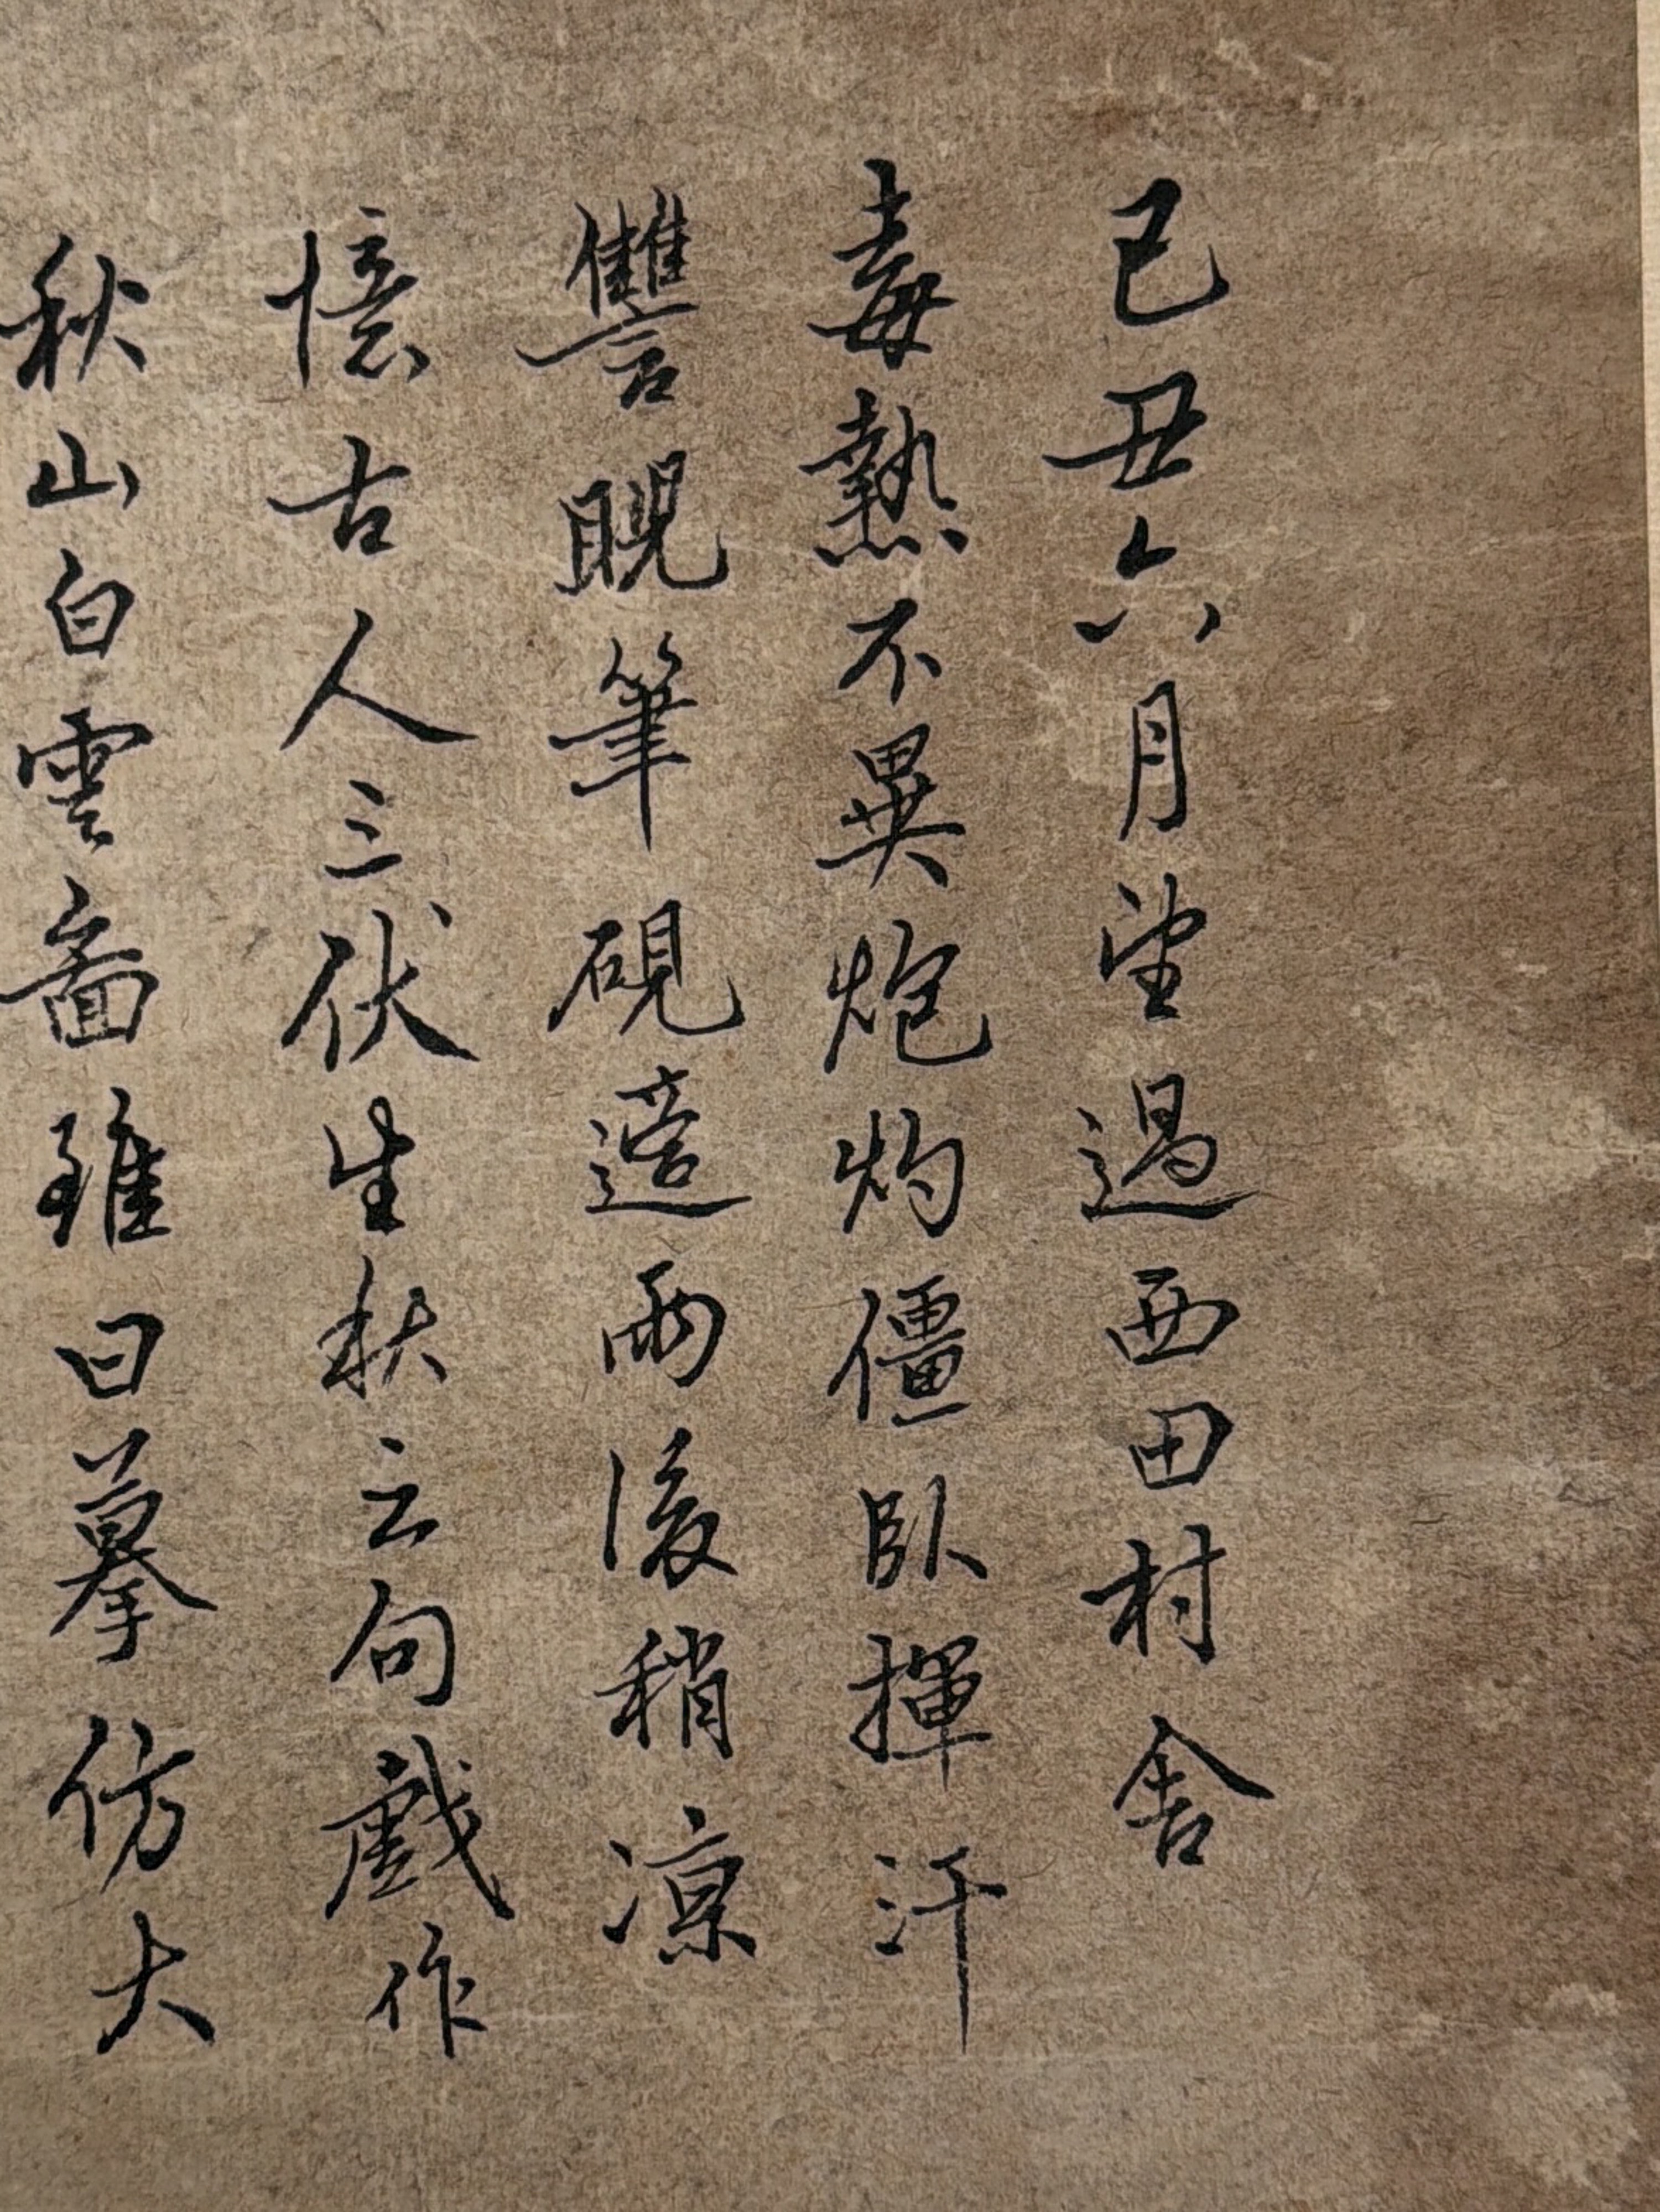 己丑六月望過西田村舍
毒熱不異炮灼僵臥揮汗
讐睨筆硯適雨後稍凉
憶古人三伏生秋之句戲作
秋山白雲啚雖曰摹仿大